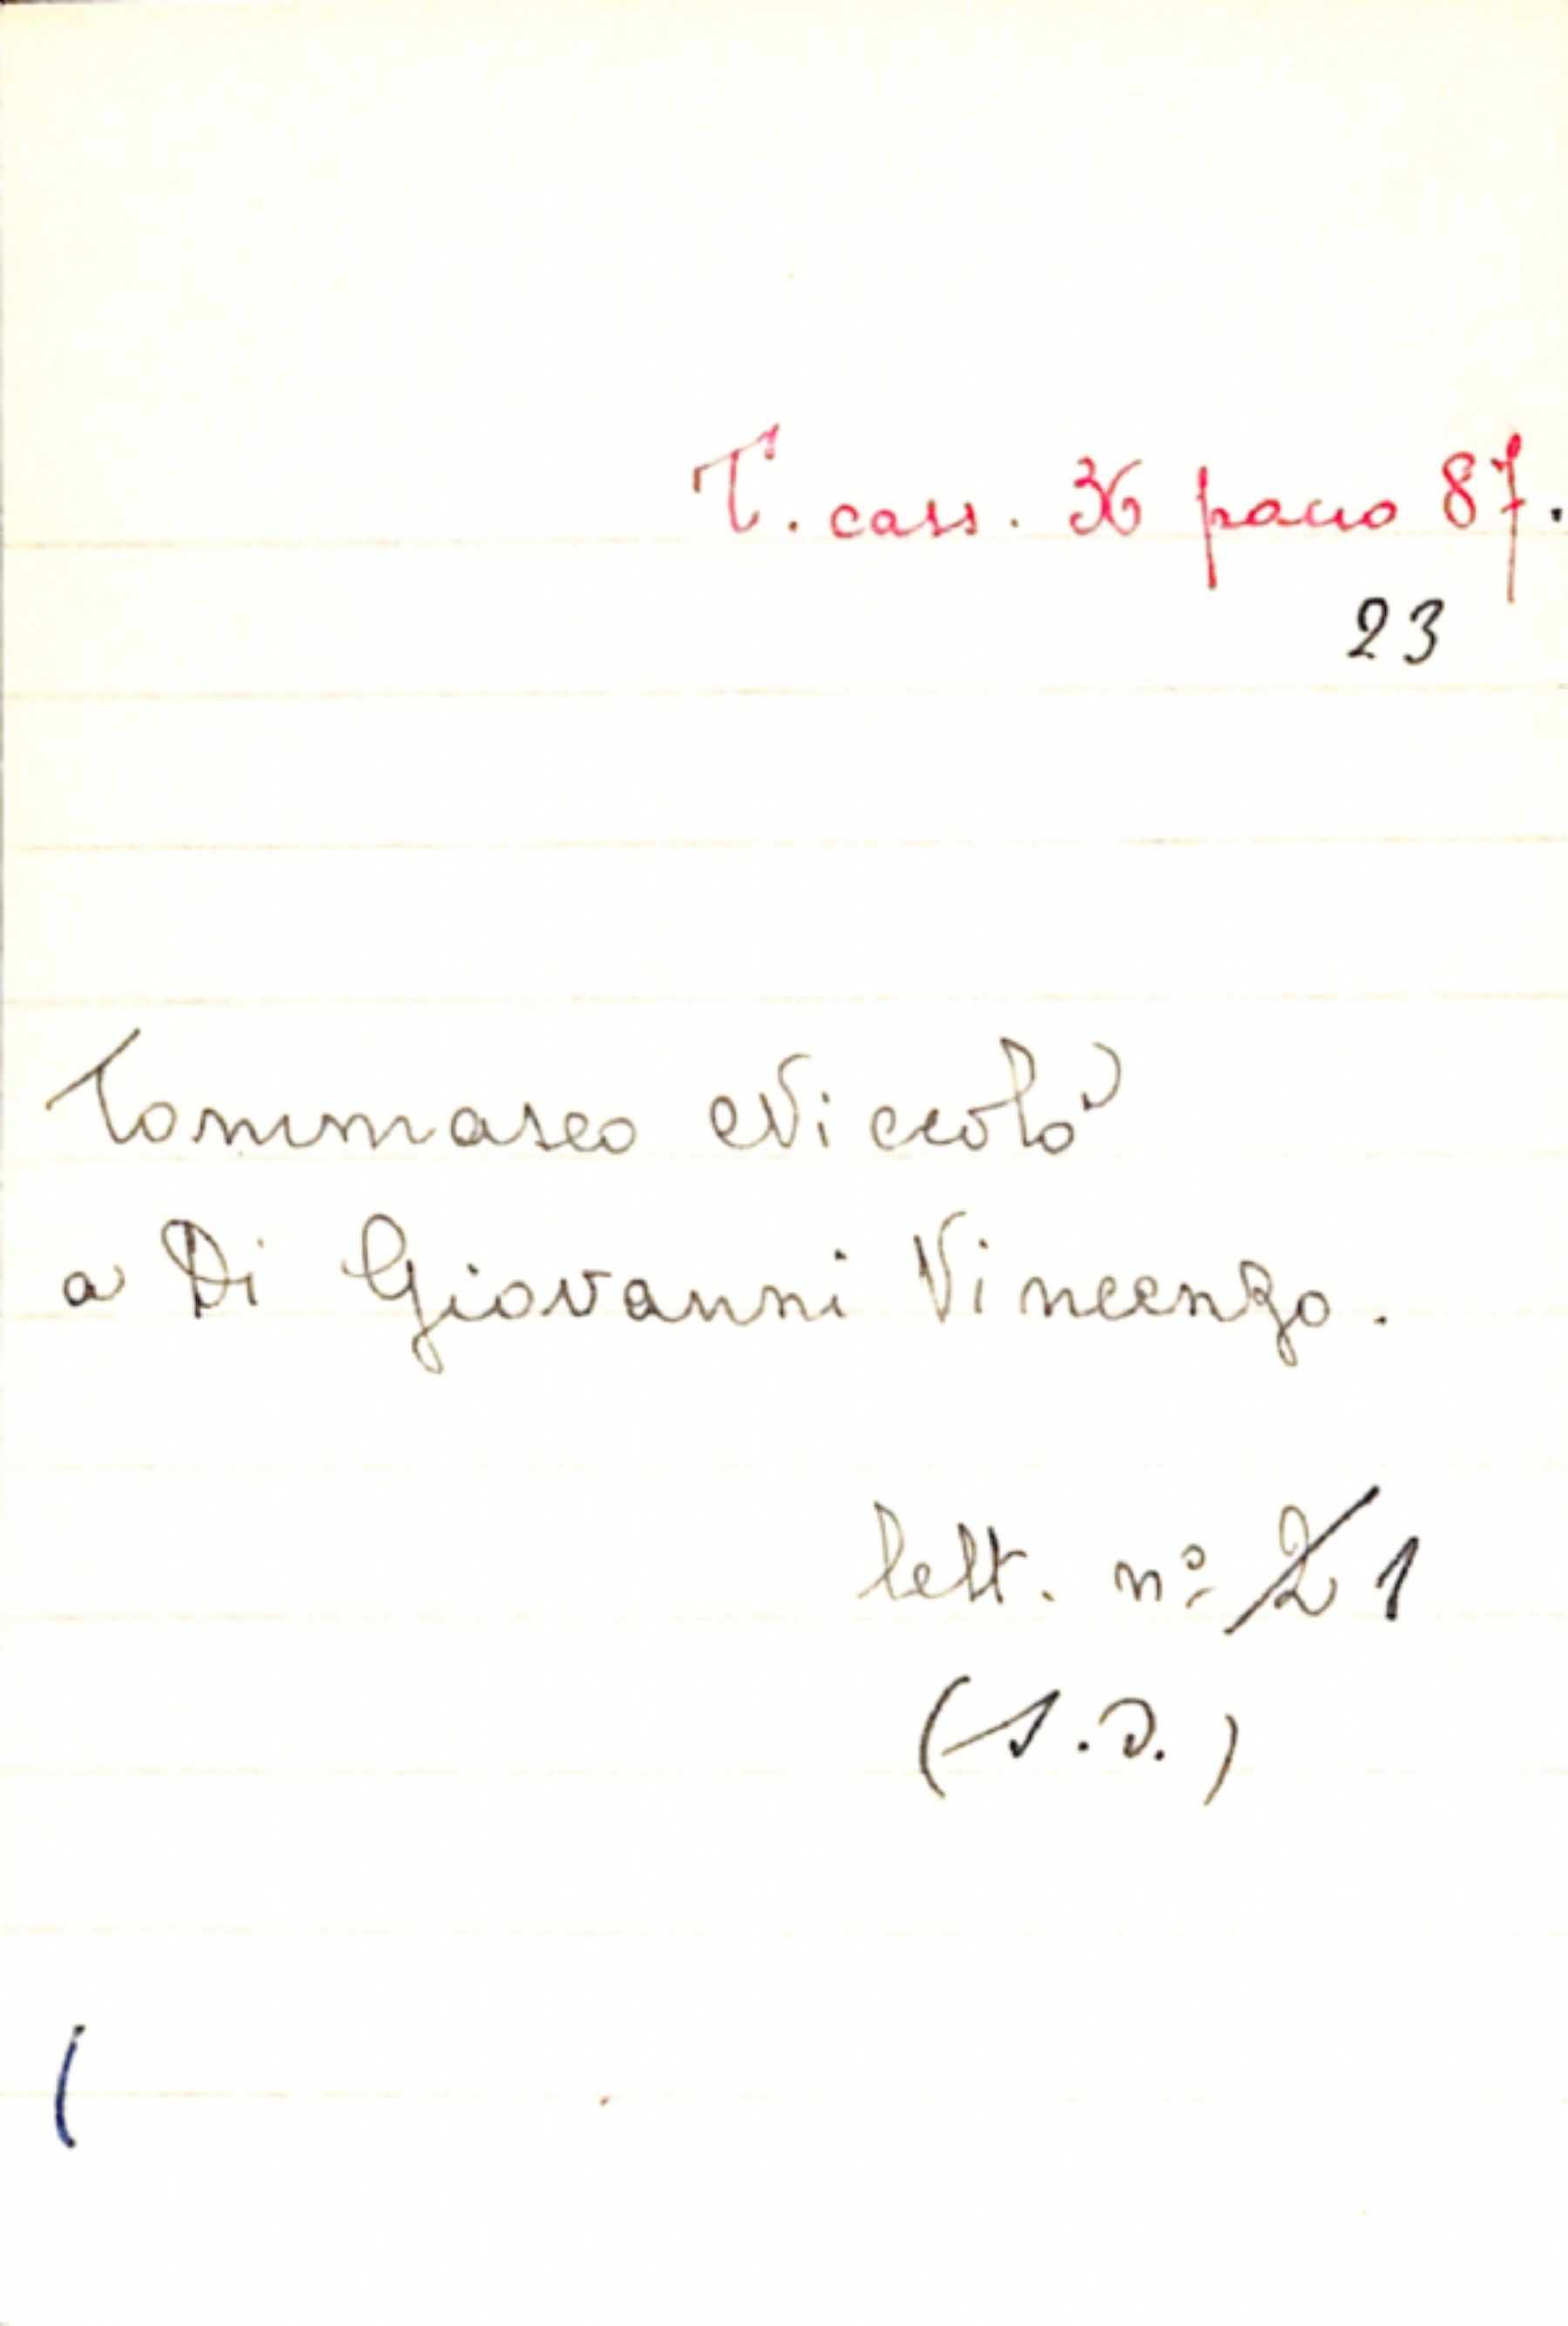 T. cass. 36 pacco 87.
23
Tommaseo Niccolò
a Di Giovanni Vincenzo.
lett. nº 2 1
(s.d.)
(